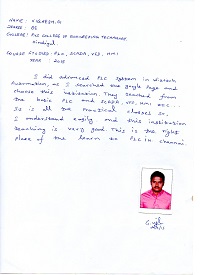 NAME : VIGNESH.G
DEGREE : BE
COLLEGE : PSNA COLLEGE OF ENGINEERING TECHNOLOGY
Dindigul.
COURSE STUDIED : PLC, SCADA, VFD, HMI
YEAR : 2015
I did advanced PLC system in
Automation, as I searched the google page and
choose this institution. They teached from
the basic PLC and SCADA, VFD, HMI etc..
It is all the practical classes so,
I understood easily and this institution
teaching is very good. This is the right
place of the learn to PLC in Chennai.